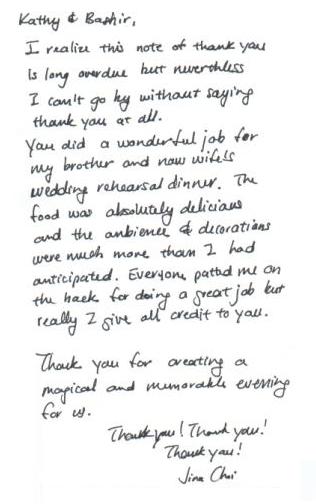 Kathy & Bashir,
I realize this note of thank you
is long overdue but neverthless
I can't go by without saying
thank you at all.
You did a wonderful job for
my brother and new wife's
wedding rehearsal dinner. The
food was absolutely delicious
and the ambience & decorations
were much more than I had
anticipated. Everyone patted me on
the back for doing a great job but
really I give all credit to you.
Thank you for creating a
magical and memorable evening
for us.
Thank you! Thank you!
Thank you!
Jina Choi